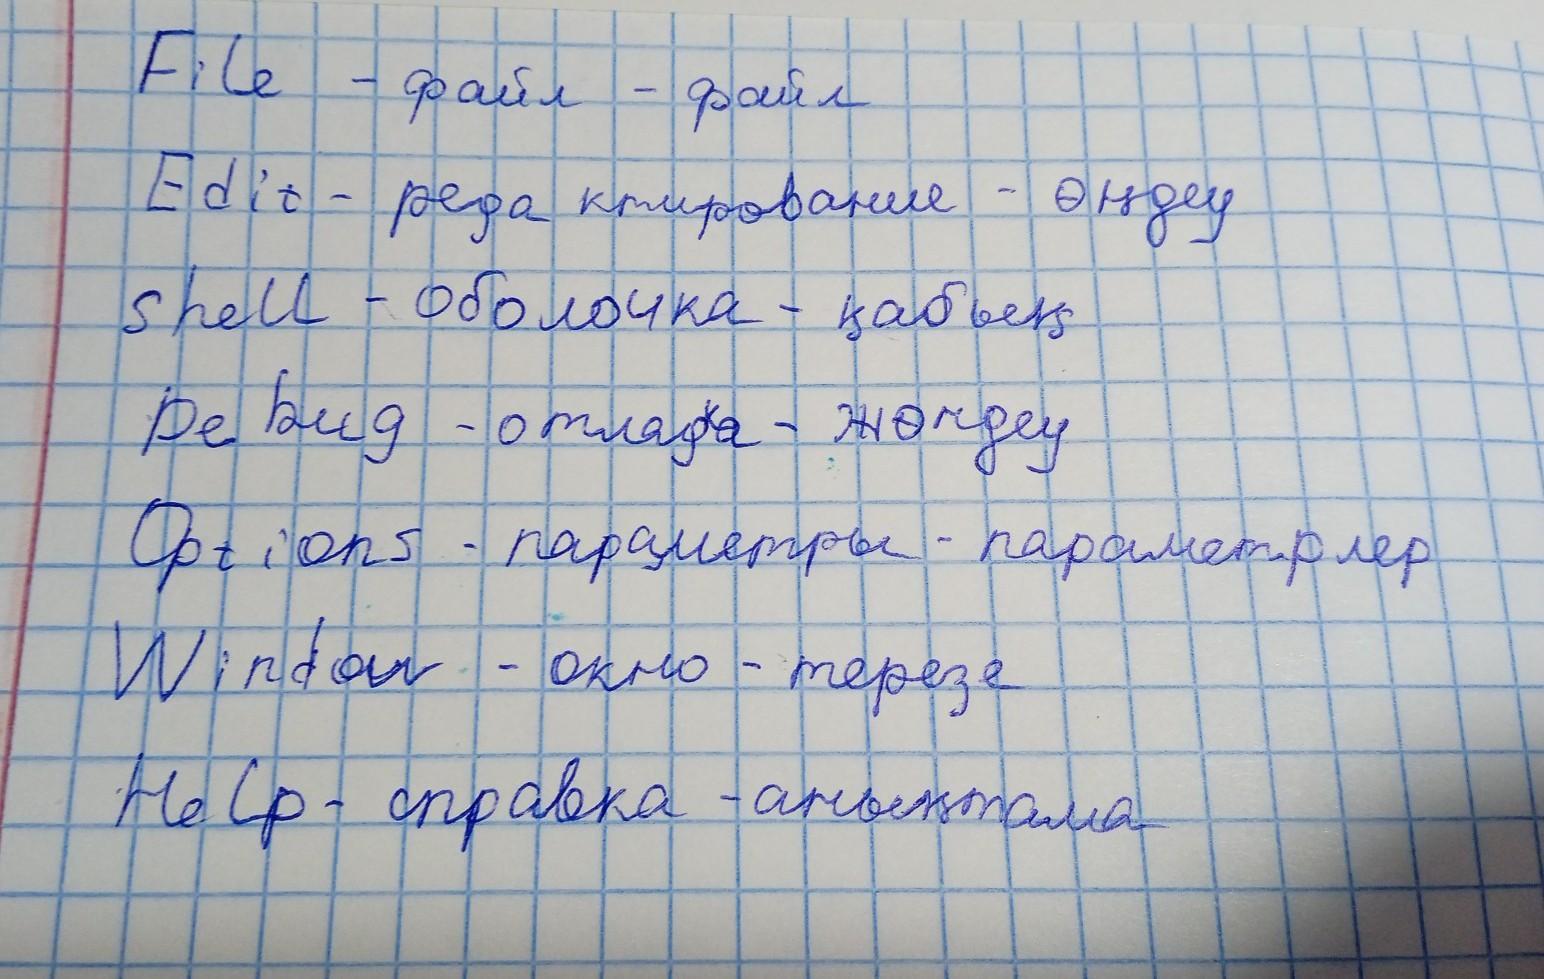 File - файл - файл
Edit - редактирование - өңдеу
shell - оболочка - қабық
Debug - отладка - жөндеу
Options - параметры - параметрлер
Window - окно - терезе
Help - справка - анықтама